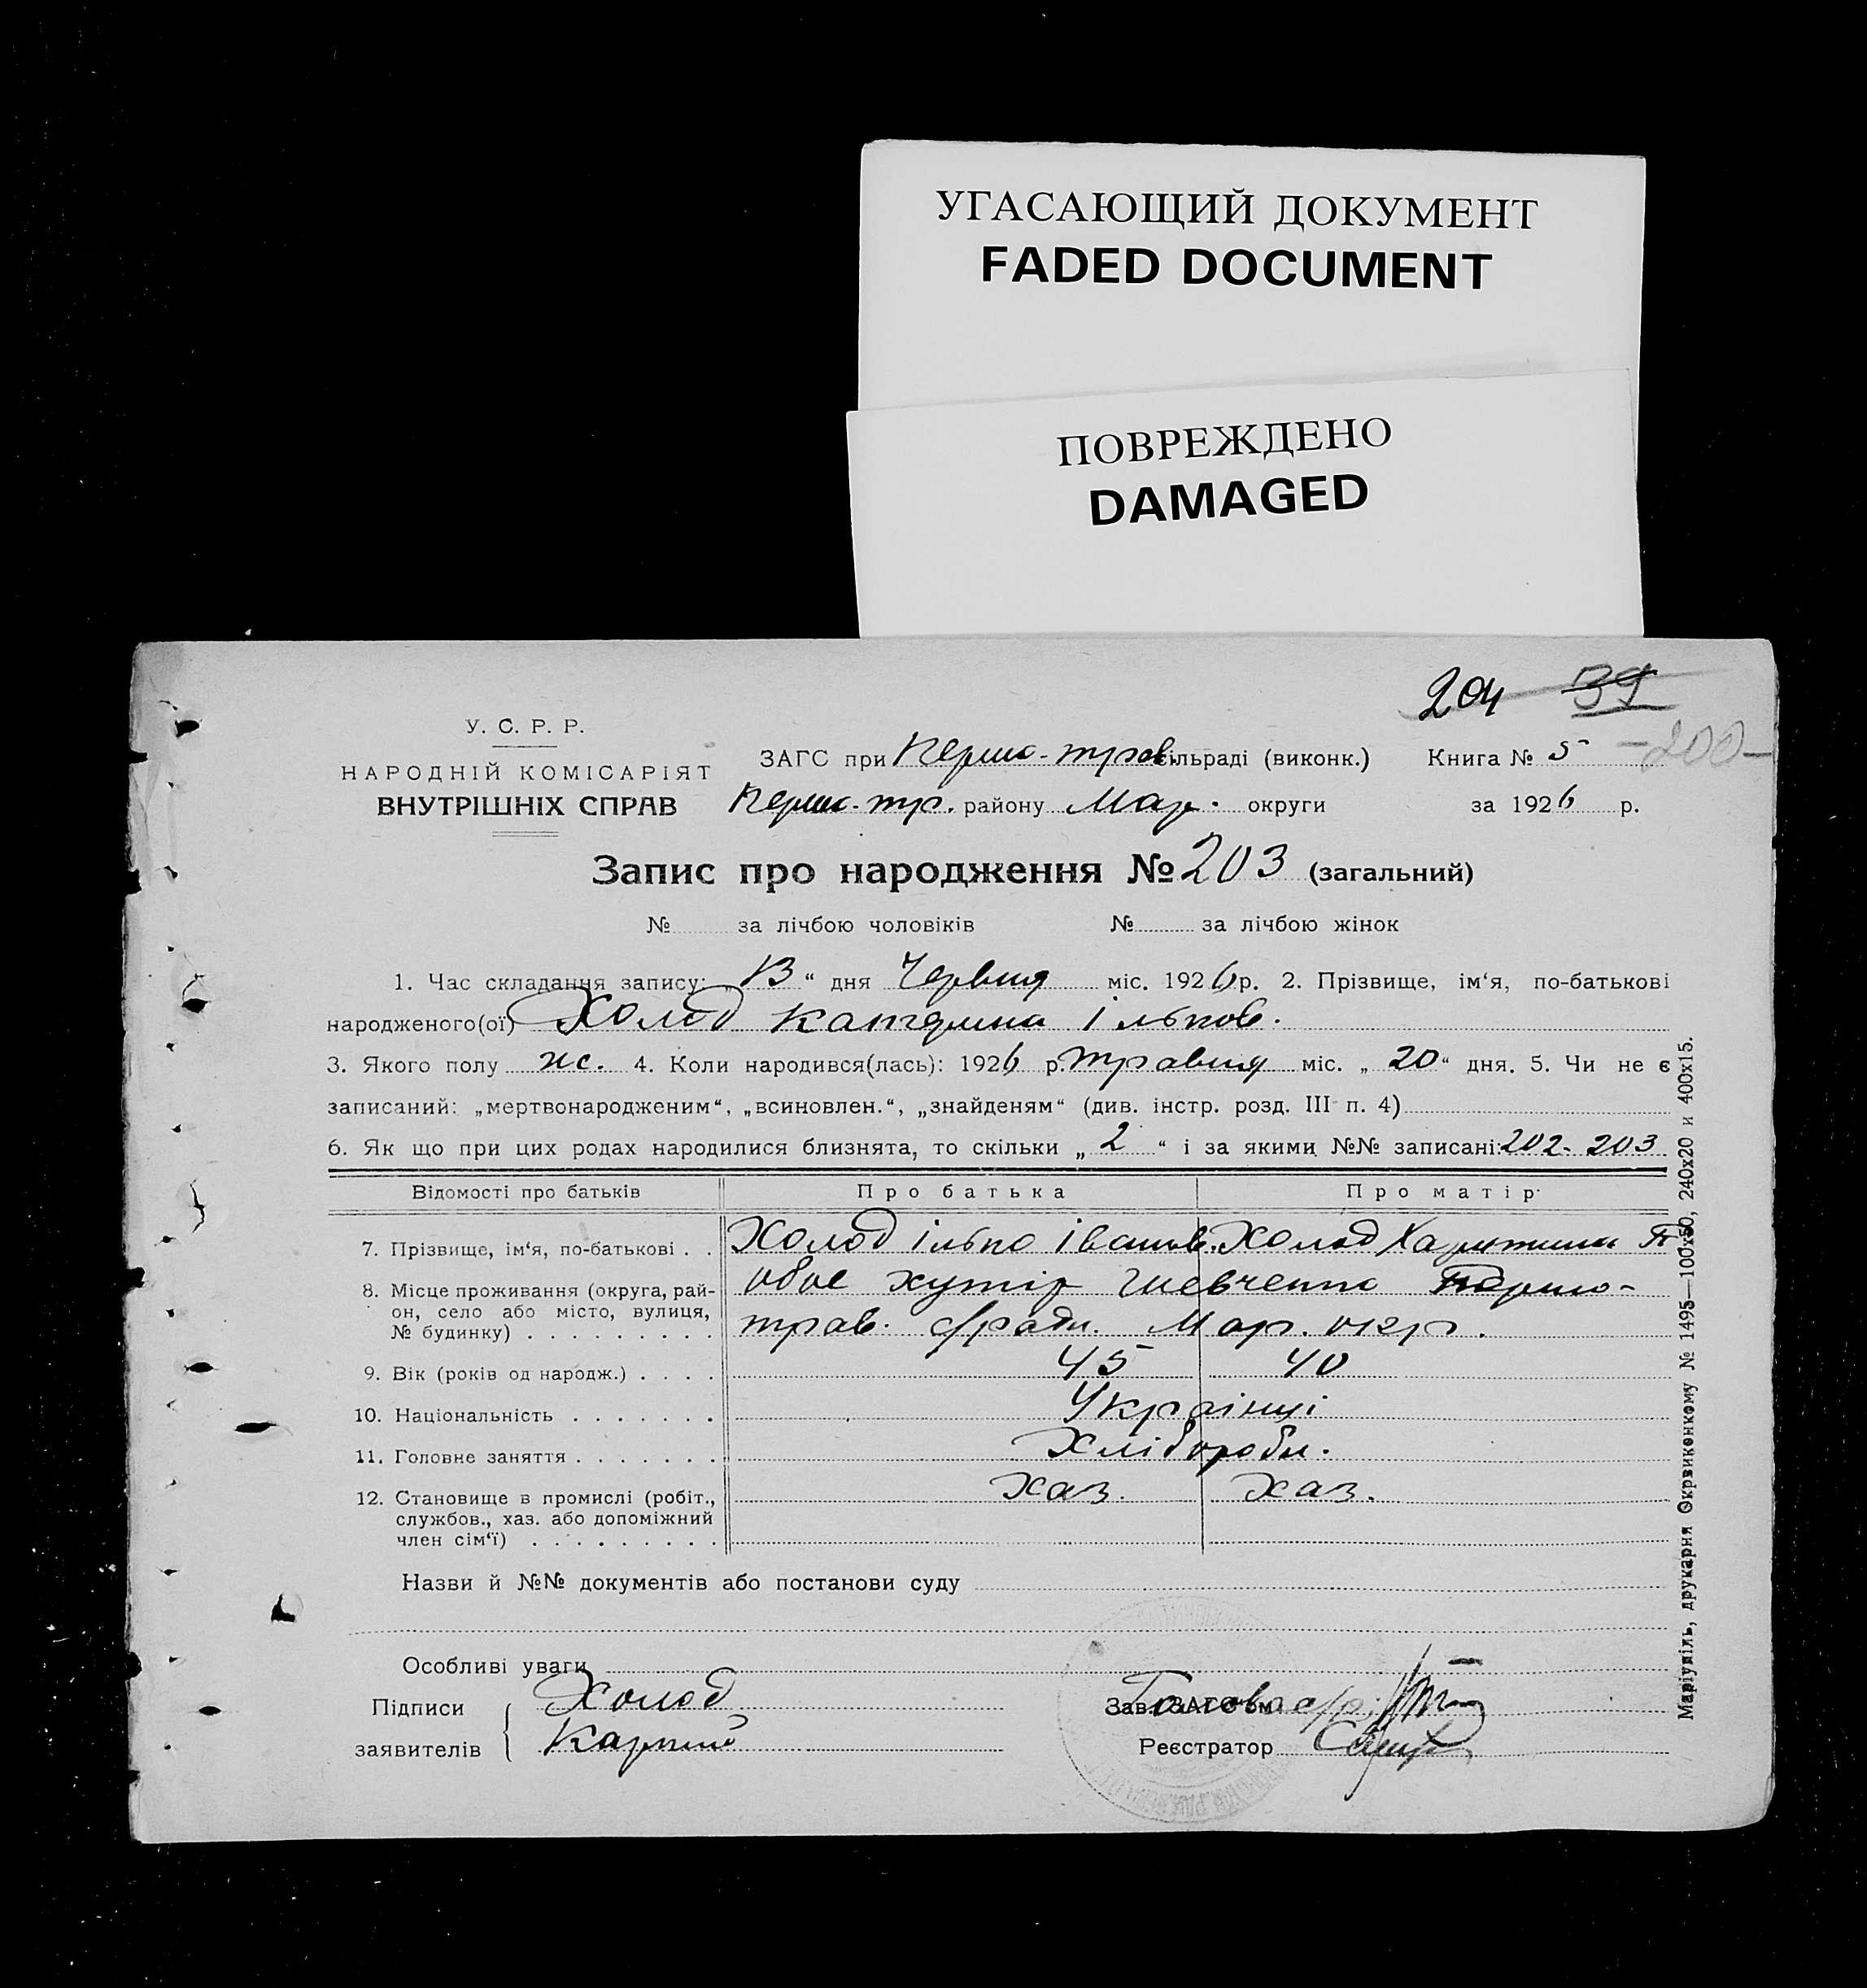 УГАСАЮЩИЙ ДОКУМЕНТ
FADED DOCUMENT
ПОВРЕЖДЕНО
DAMAGED
204 39
-200-
У. С. Р. Р.
НАРОДНІЙ КОМІСАРІЯТ
ВНУТРІШНІХ СПРАВ
ЗАГС при Першо-трав. сільраді (виконк.) Книга № 5
Першо-тр. району Мар. округи за 1926 р.
Запис про народження № 203 (загальний)
№ за лічбою чоловіків № за лічбою жінок
1. Час складання запису: „13“ дня Червня міс. 1926 р. 2. Прізвище, ім‘я, по-батькові
народженого(ої) Холод Катерина Ільков.
3. Якого полу жс. 4. Коли народився(лась): 1926 р. травня міс. „20“ дня. 5. Чи не є
записаний: „мертвонародженим“, „всиновлен.“, „знайденям“ (див. інстр. розд. III п. 4)
6. Як що при цих родах народилися близнята, то скільки „2“ і за якими №№ записані: 202-203
Відомості про батьків Про батька Про матір
7. Прізвище, ім‘я, по-батькові . . Холод Ілько Іванов. Холод Харитина П
8. Місце проживання (округа, рай-
он, село або місто, вулиця,
№ будинку) . . . . . . . . .
обоє хутір Шевченко Першо-
трав. с/ради. Мар. окр.
9. Вік (років од народж.) . . . . 45 40
10. Національність . . . . . . . Українці
11. Головне заняття . . . . . . . Хлібороби.
12. Становище в промислі (робіт.,
службов., хаз. або допоміжний
член сім‘ї) . . . . . . . . .
хаз. хаз.
Назви й №№ документів або постанови суду
Особливі уваги
Підписи
заявителів
Холод
Зав. ЗАГС‘ом
Голова с/р.
Реєстратор
Маріупіль, друкарня Окрвиконкому № 1495—100х50, 240х20 и 400х15.